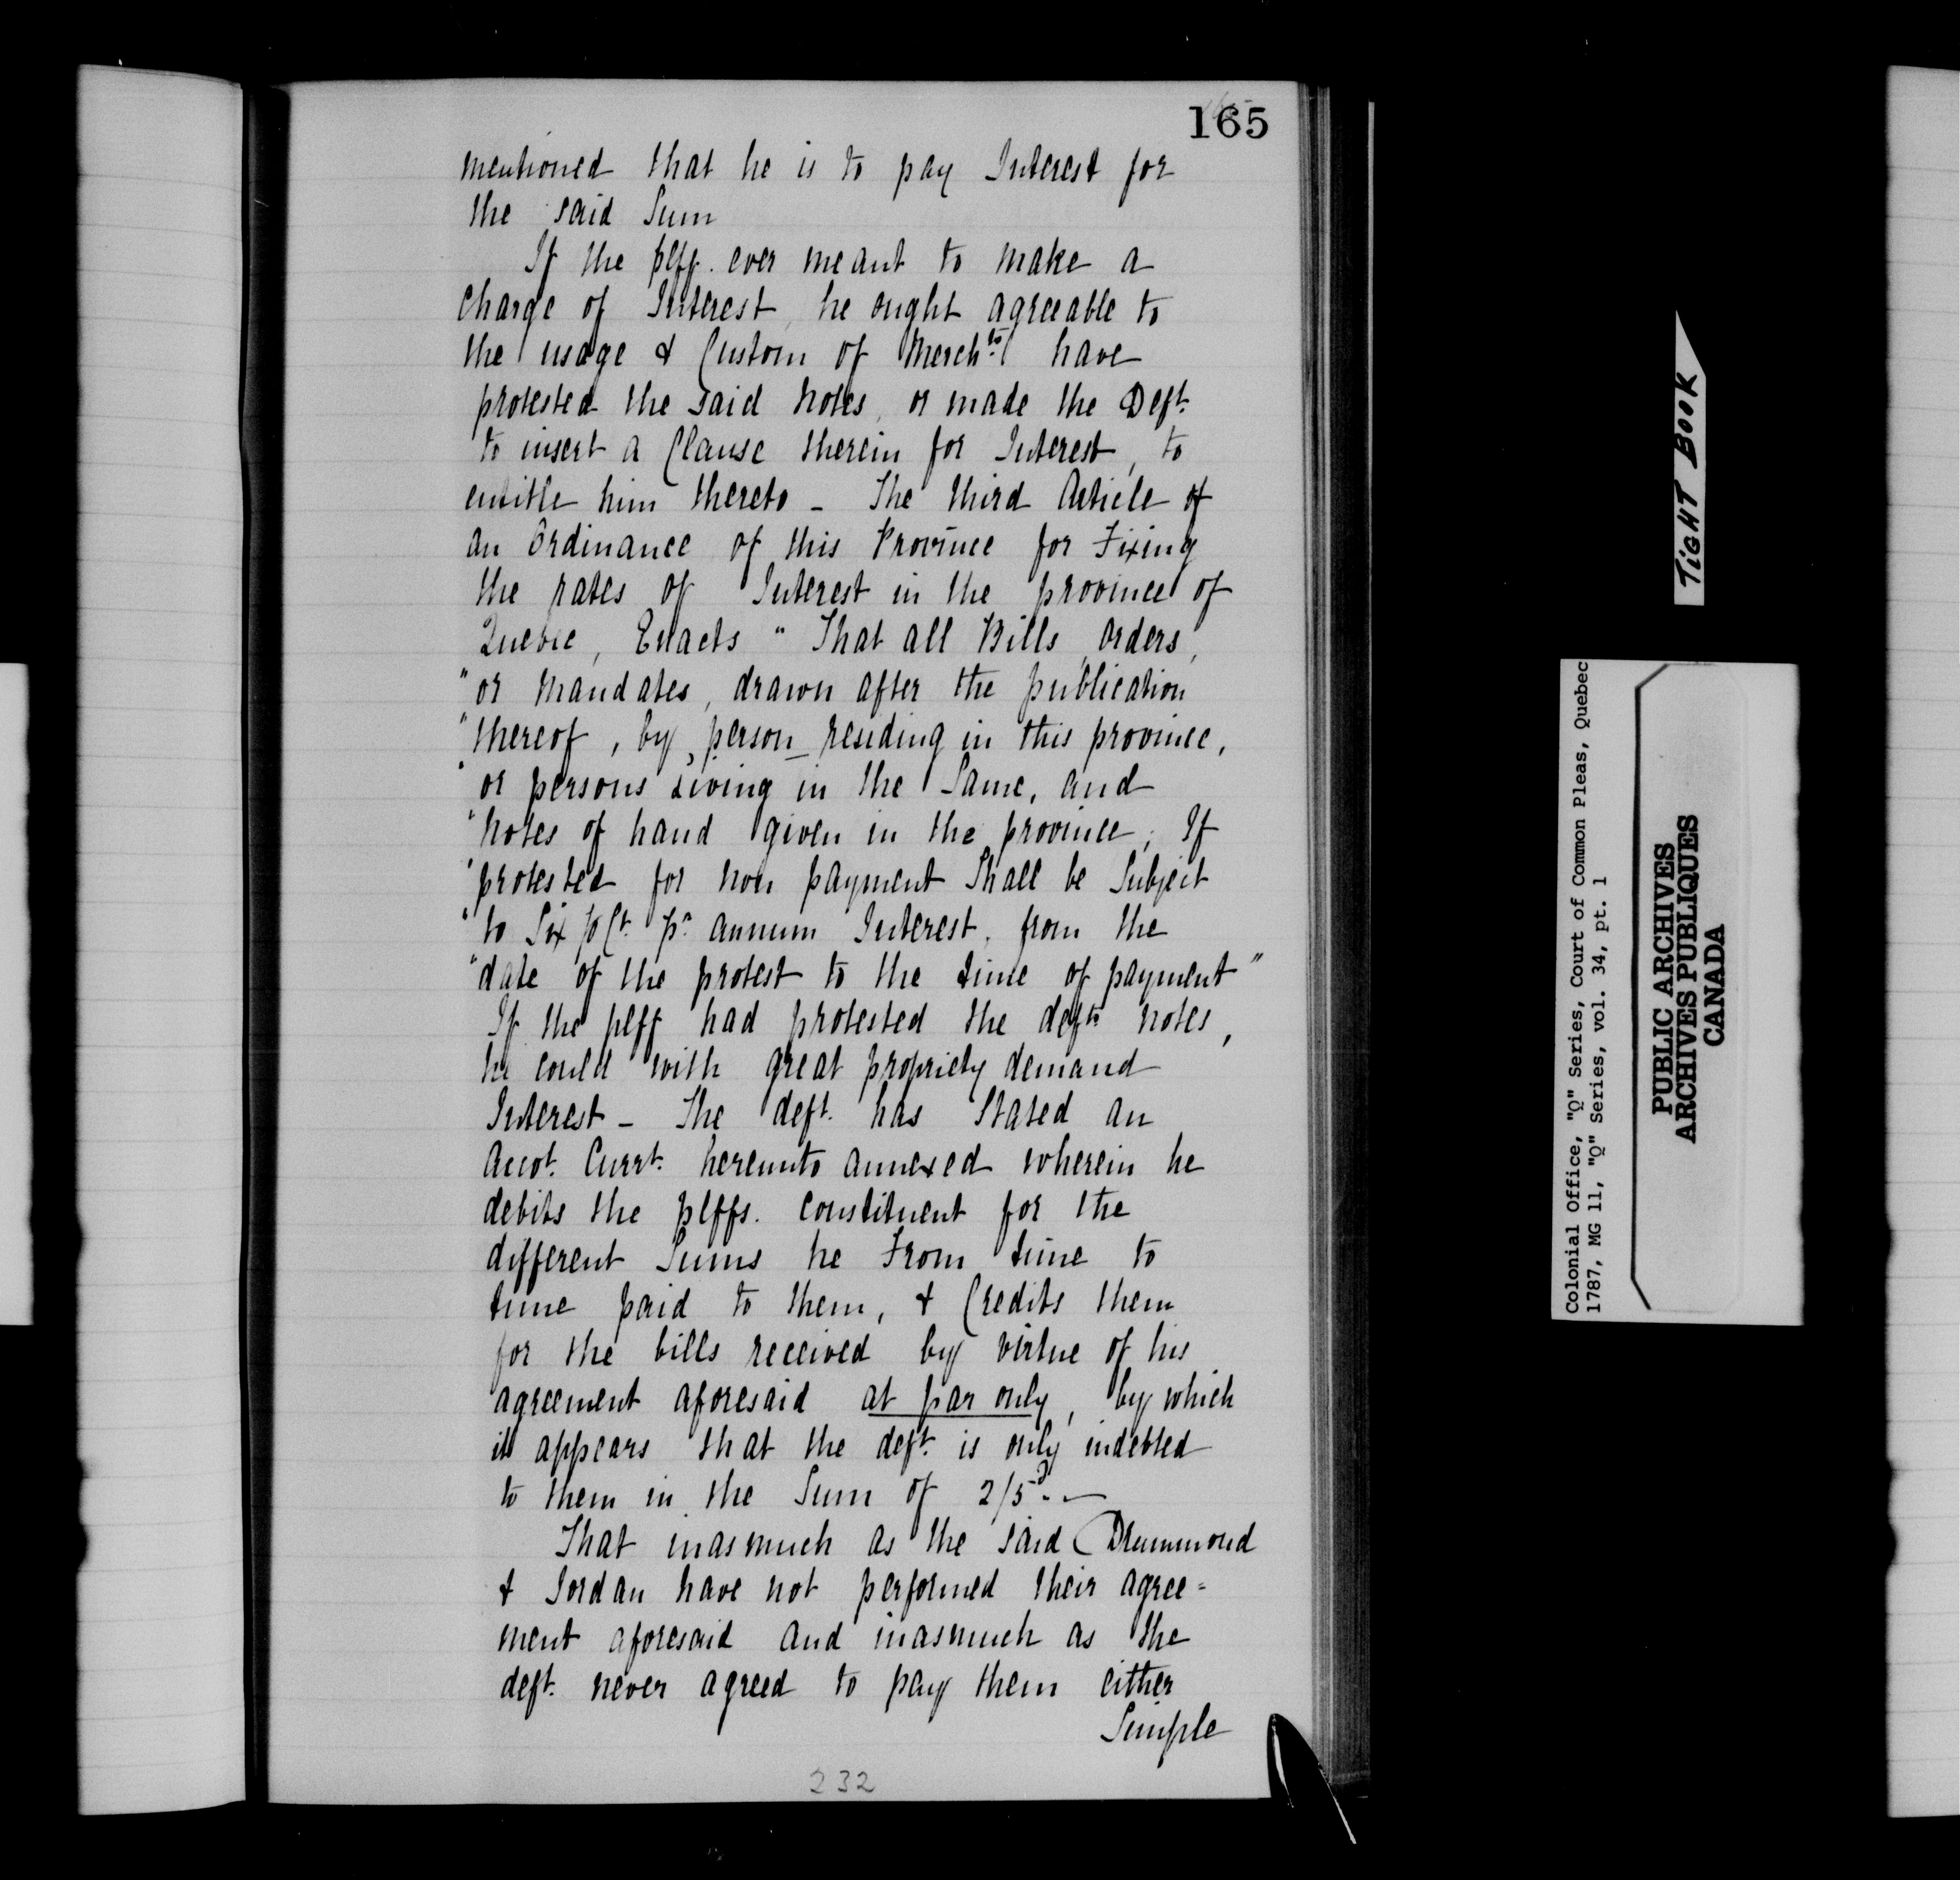 165
mentioned that he is to pay Interest for
the said Sum
If the plff. ever meant to make a
charge of Interest, he ought agreeable to
the usage & Custom of Merchts. have
protested the said notes, or made the Deft.
to insert a Clause therein for Interest, to
entitle him thereto - The third Article of
an Ordinance of this Province for Fixing
the rates of Interest in the province of
Quebec, Enacts " That all Bills, orders,
" or mandates, drawn after the publication
" thereof, by person residing in this province,
" or persons living in the Same, and
" notes of hand given in the province, If
" protested for non payment Shall be Subject
" to Six p Ct. pr. annum Interest, from the
" date of the protest to the time of payment "
If the plff had protested the defts notes,
he could with great propriety demand
Interest - The deft. has Stated an
Accot. Currt. hereunto annexed wherein he
debits the plffs. constituent for the
different Sums he From time to
time paid to them, & Credits them
for the bills received by virtue of his
agreement aforesaid at par only, by which
it appears that the deft. is only indebted
to them in the Sum of 2/5d. -
That inasmuch as the said Drummond
& Jordan have not performed their agree=
ment aforesaid and inasmuch as the
deft. never agreed to pay them either
Simple
232
TIGHT BOOK
Colonial Office, "Q" Series, Court of Common Pleas, Quebec
1787, MG 11, "Q" Series, vol. 34, pt. 1
PUBLIC ARCHIVES
ARCHIVES PUBLIQUES
CANADA